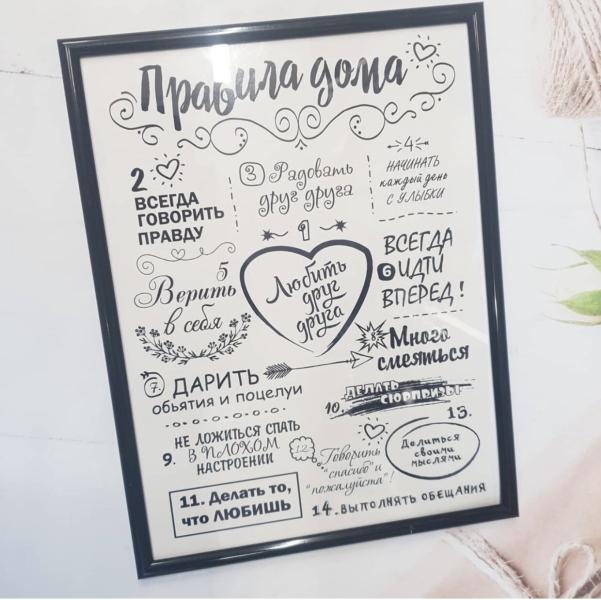 Правила дома
2
ВСЕГДА
ГОВОРИТЬ
ПРАВДУ
3 Радовать
друг друга
4
НАЧИНАТЬ
каждый день
С УЛЫБКИ
1
Любить
друг
друга
5
Верить
в себя
ВСЕГДА
6 ИДТИ
ВПЕРЕД!
7. ДАРИТЬ
обьятия и поцелуи
8. Много
смеяться
9. НЕ ЛОЖИТЬСЯ СПАТЬ
В ПЛОХОМ
НАСТРОЕНИИ
10. ДЕЛАТЬ
СЮРПРИЗЫ
11. Делать то,
что ЛЮБИШЬ
12. Говорить
"спасибо" и
"пожалуйста"!
13.
Делиться
своими
мыслями
14. ВЫПОЛНЯТЬ ОБЕЩАНИЯ